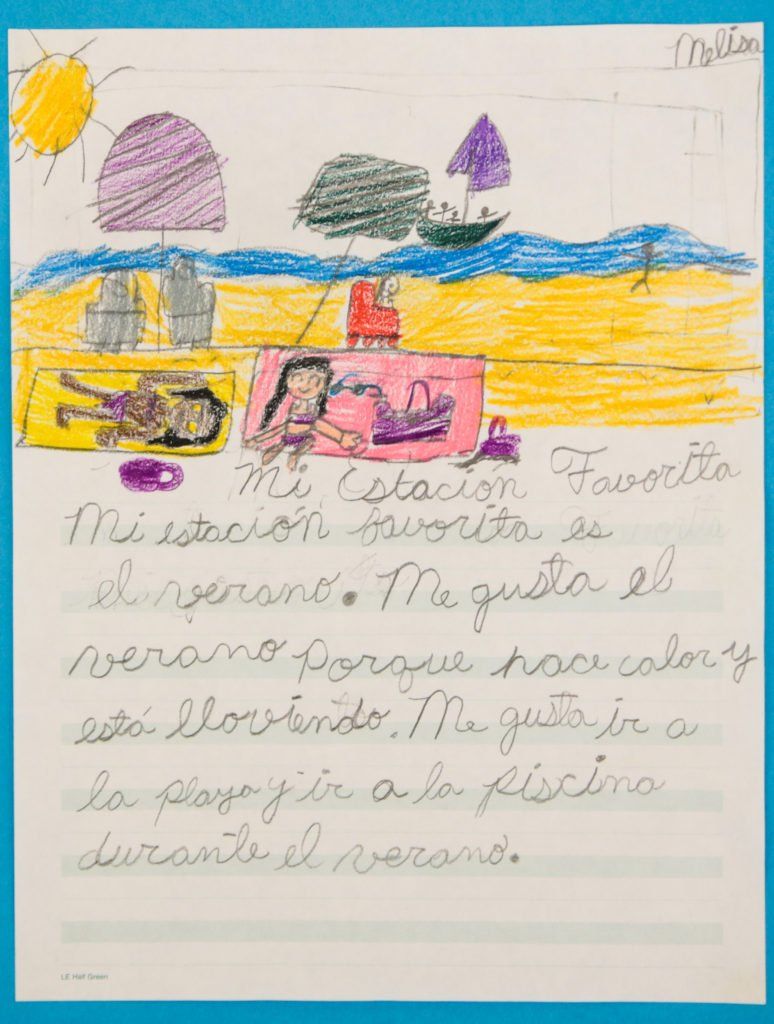 Melisa
Mi Estacion Favorita
Mi estación favorita es
el verano. Me gusta el
verano porque hace calor y
está lloviendo. Me gusta ir a
la playa y ir a la piscina
durante el verano.
LE Half Green